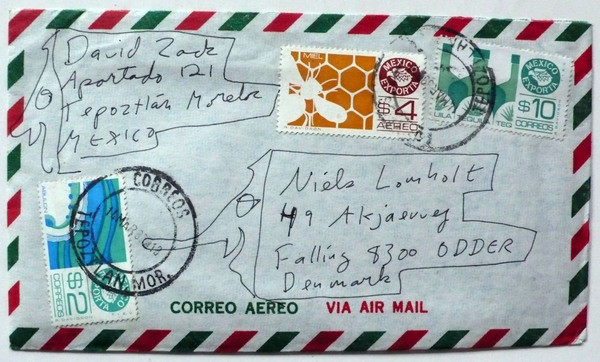 David Zack
Apartado 121
Tepoztlán Morelos
MEXICO
MIEL
MEXICO
EXPORTA
$4
AEREO
MEXICO
EXPORTA
$10
TEQUILA TEQ
CORREOS
TEPOZTLAN
Niels Lomholt
49 Akjaervej
Falling 8300 ODDER
Denmark
$2
CORREOS
EXPORTA
CORREOS
TEPOZTLAN, MOR.
CORREO AEREO
VIA AIR MAIL